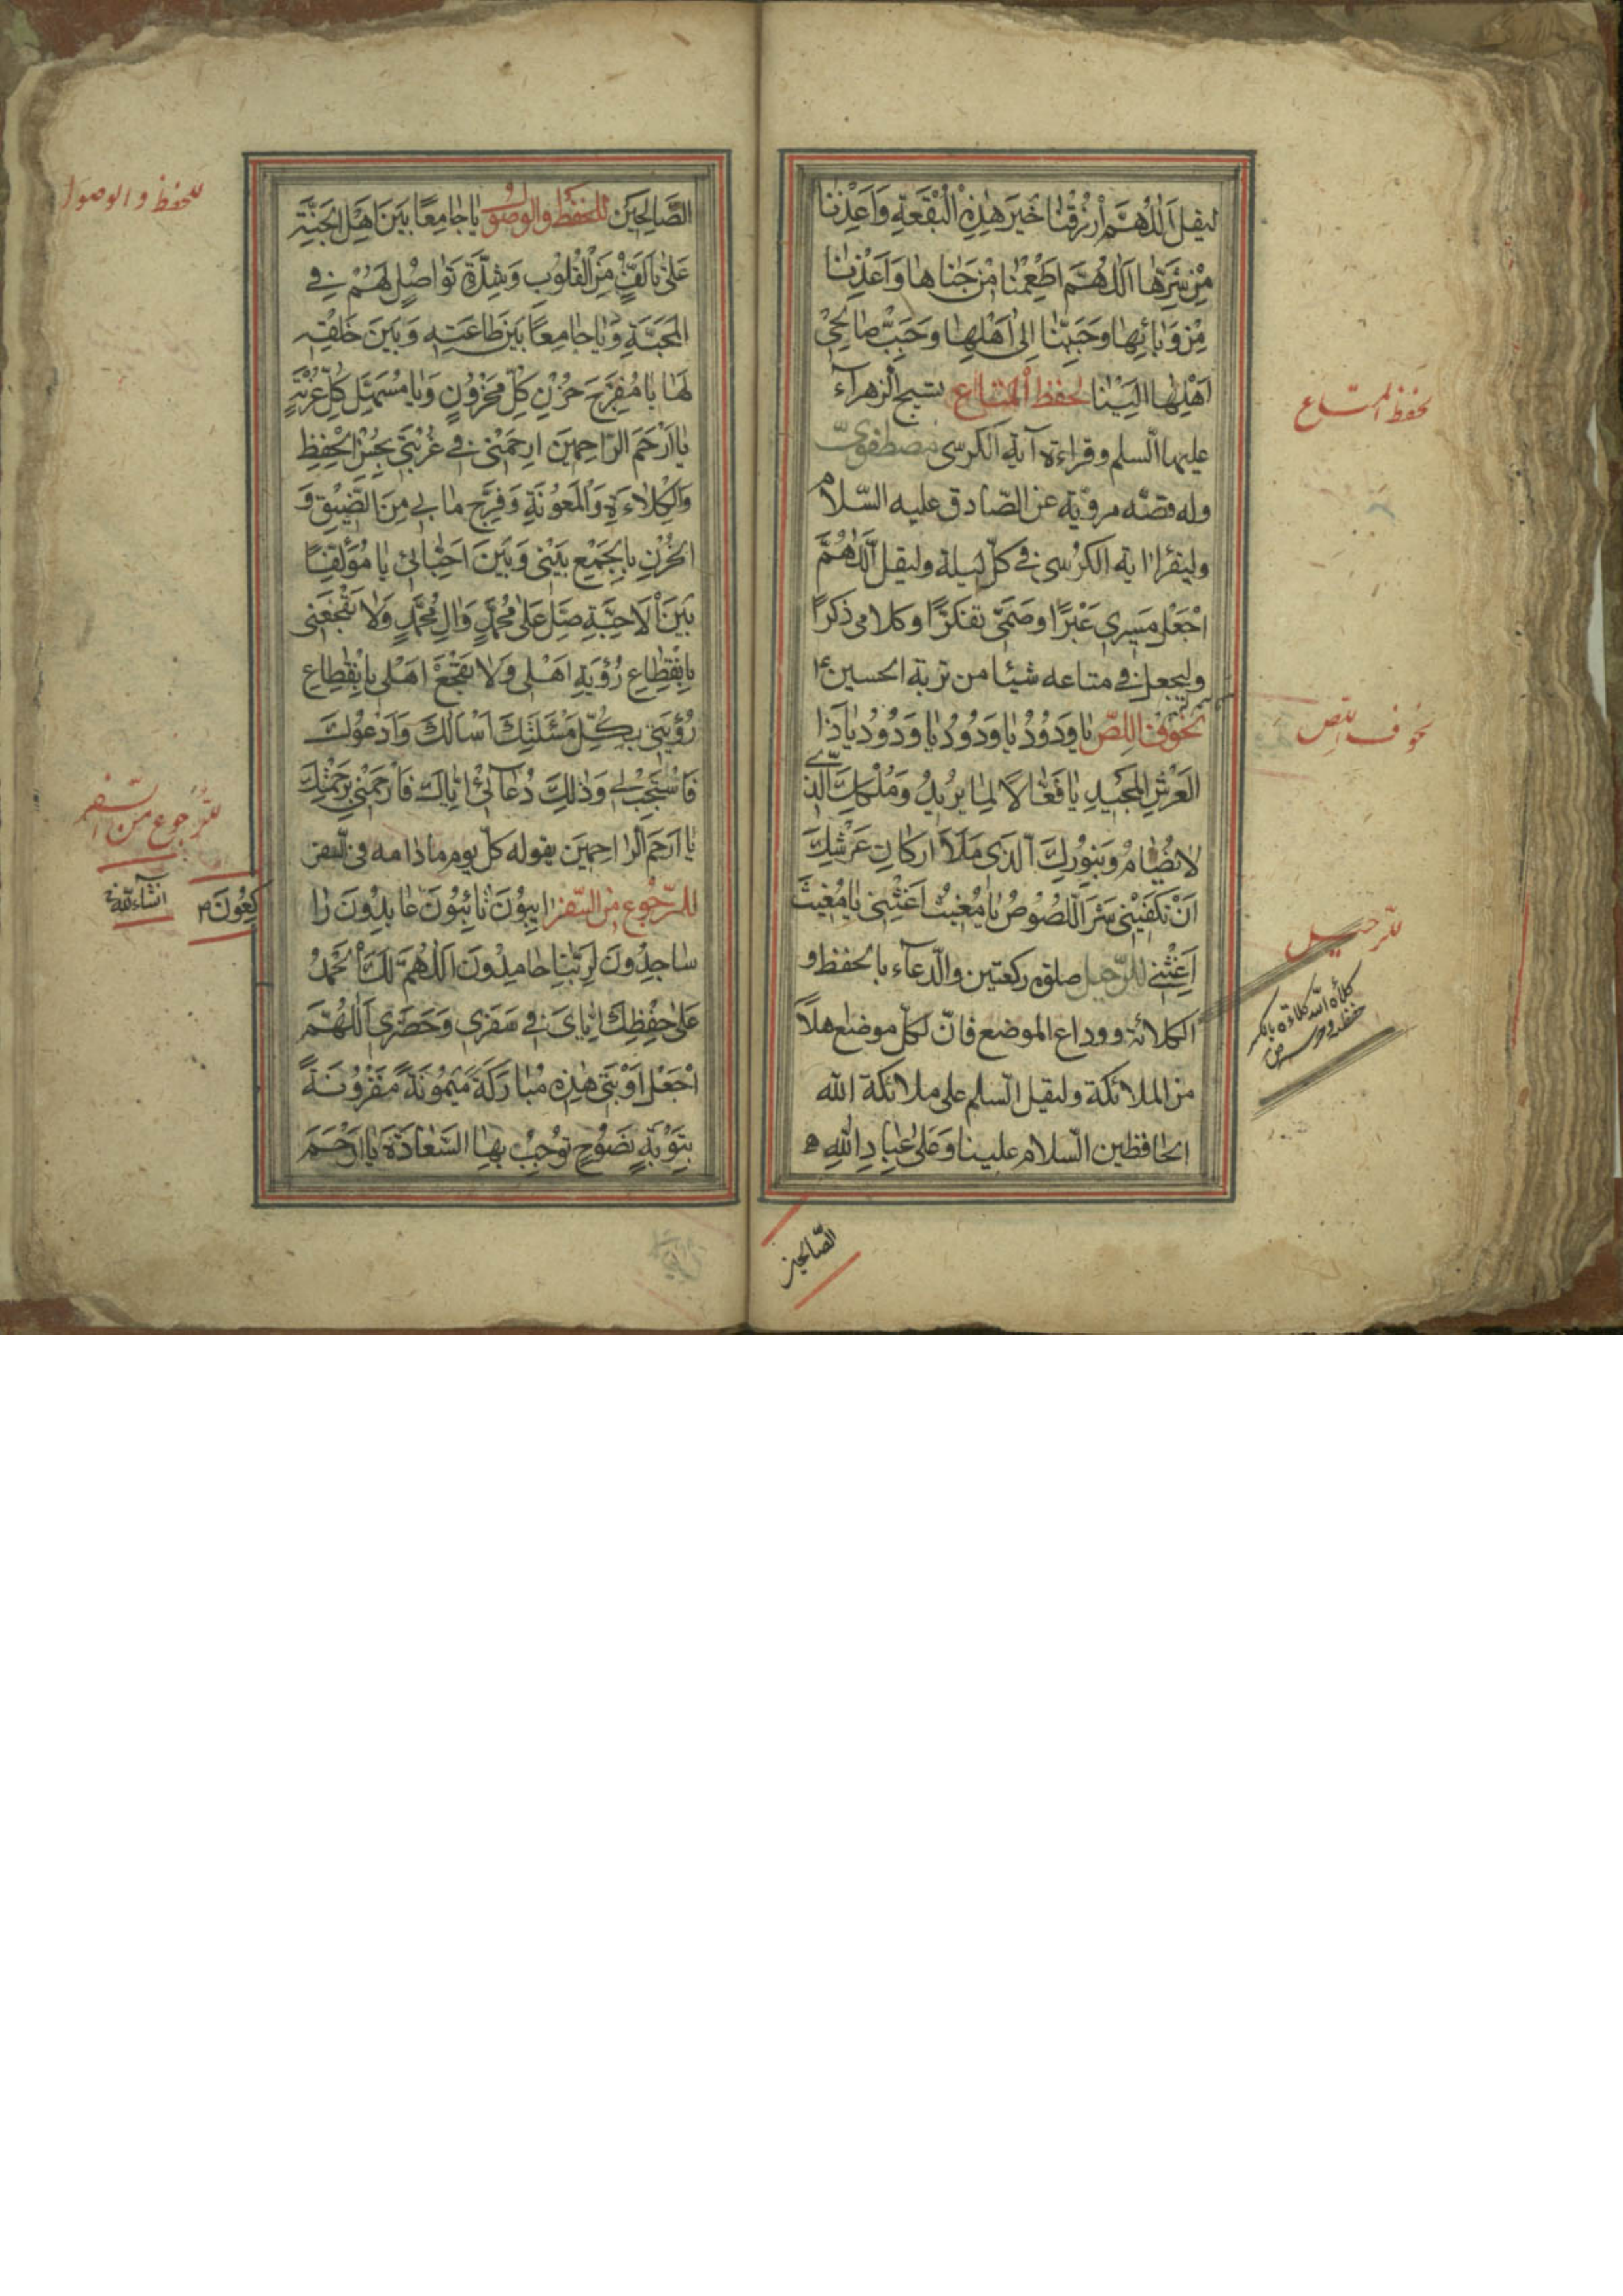 ليقل اَللّٰهُمَّ ارْزُقْنا خَيْرَ هٰذِهِ الْبُقْعَةِ وَاَعِذْنا
مِنْ شَرِّها اَللّٰهُمَّ اَطْعِمْنا مِنْ جَناها وَاَعِذْنا
مِنْ وَبائِها وَحَبِّبْنا اِلىٰ اَهْلِها وَحَبِّبْ صالِحِيْ
اَهْلِها اِلَيْنا لحفظ المتاع تسبيح الزهرآء
عليها السّلم وقراءة آية الكرسى
وله قصّه مرويّة عن الصّادق عليه السّلام
وليقرا اية الكرسى فى كلّ ليلة وليقل اَللّٰهُمَّ
اجْعَلْ مَسيرى عَبَرًا وصَمْتى تفكّرًا وكلامى ذكرًا
وليجعل فى متاعه شيئا من تربة الحسين ع
لخوف اللصّ يا وَدُوْدُ يا وَدُوْدُ يا وَدُوْدُ يا ذَا
الْعَرْشِ الْمَجيْدِ يا فَعّالًا لِما يُريْدُ وَمُلْكِكَ الَّذي
لا يُضامُ وَبِنُوْرِكَ الَّذى مَلَأَ اَرْكانَ عَرْشِكَ
اَنْ تَكْفِيَنى شَرَّ اللُّصُوْصُ يا مُغيثُ اَغِثْنِى يا مُغيثُ
اَغِثْنى للرّحيل صلوة ركعتين والدّعآء بالحفظ و
الكلائة ووداع الموضع فانّ لكلّ موضع اهلاً
من الملائكة وليقل السّلم على ملائكة الله
الحافظين السّلام علينا وَعَلىٰ عِبادِ اللهِ
الصّالحين
لحفظ المتاع
لخوف اللّص
للرّحيل
كلأه الله كلاءة بالكسر
حفظه وحرسه ص
الصّالِحيْنَ للحفظ والوصول يا جامِعًا بَيْنَ اَهْلِ الْجَنَّةِ
عَلىٰ تَاَلُّفٍ مِنَ الْقُلُوْبِ وَشِدَّةِ تَواصُلٍ لَهُمْ فِى
الْمَحَبَّةِ وَيا جامِعًا بَيْنَ طاعَتِهِ وَبَيْنَ خَلْقِهِ
لَها يا مُفَرِّجَ حُزْنِ كُلِّ مَحْزُوْنٍ وَيا مُسَهِّلَ كُلِّ غُرْبَةٍ
يا اَرْحَمَ الرّاحِمِيْنَ ارْحَمْنى فى غُرْبَتى بِحُسْنِ الْحِفْظِ
وَالْكِلاءَةِ وَالْمَعُوْنَةِ وَفَرِّجْ ما بى مِنَ الضِّيْقِ وَ
الْحُزْنِ بِالْجَمْعِ بَيْنى وَبَيْنَ اَحِبّائى يا مُؤَلِّفًا
بَيْنَ الْاَحِبَّةِ صَلِّ عَلىٰ مُحَمَّدٍ وَالِ مُحَمَّدٍ وَلا تَفْجَعْنى
بِانْقِطاعِ رُؤْيَةِ اَهْلى وَلا تَفْجَعْ اَهْلى بِانْقِطاعِ
رُؤْيَتى بِكُلِّ مَسْئَلَتِكَ اَسْأَلُكَ وَاَدْعُوْكَ
فَاسْتَجِبْ لى وَذٰلِكَ دُعآئى اِيّاكَ فَارْحَمْنى بِرَحْمَتِكَ
يا اَرْحَمَ الرّاحِمِيْنَ يقوله كلّ يوم مادامه فى السّفر
للرّجوع من السّفر ايِبُوْنَ تائِبُوْنَ عابِدُوْنَ را
كِعُوْنَ
ساجِدُوْنَ لِرَبِّنا حامِدُوْنَ اَللّٰهُمَّ لَكَ الْحَمْدُ
عَلىٰ حِفْظِكَ اِيّاىَ فى سَفَرى وَحَضَرى اَللّٰهُمَّ
اجْعَلْ اَوْبَتى هٰذِهِ مُبارَكَةً مَيْمُوْنَةً مَقْرُوْنَةً
بِتَوْبَةٍ نَصُوْحٍ تُوْجِبُ بِها السَّعادَةَ يا اَرْحَمَ
للحفظ والوصول
للرّجوع من السّفر
انشآءالله